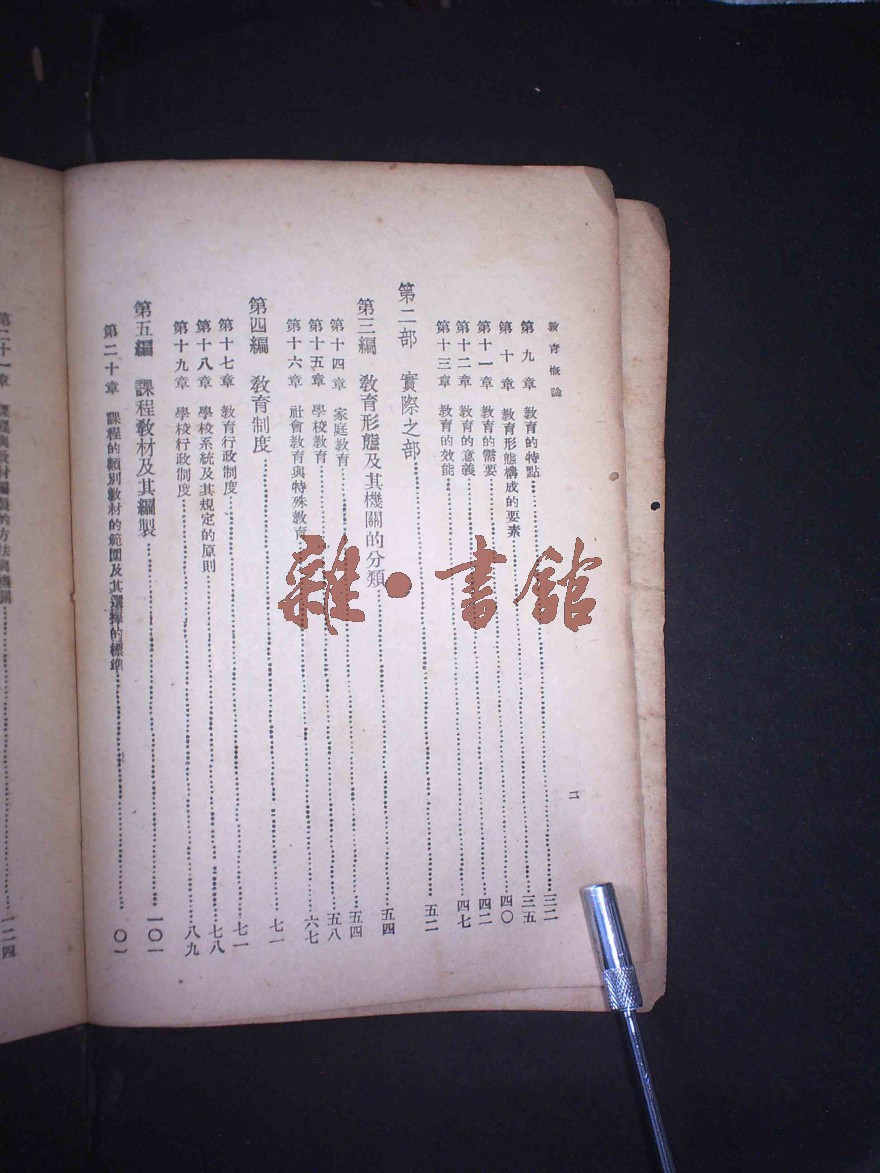 教育概論
二
第九章 教育的特點……三二
第十章 教育形態構成的要素……三五
第十一章 教育的需要……四〇
第十二章 教育的意義……四二
第十三章 教育的效能……四七
第二部 實際之部……五二
第三編 教育形態及其機關的分類……五四
第十四章 家庭教育……五四
第十五章 學校教育……五八
第十六章 社會教育與特殊教育……六七
第四編 教育制度……七一
第十七章 教育行政制度……七一
第十八章 學校系統及其規定的原則……七八
第十九章 學校行政制度……八九
第五編 課程教材及其編製……一〇一
第二十章 課程的類別教材的範圍及其選擇的標準……〇一
第二十一章 課程與教材編製的方法與機關……一二四
雜·書館